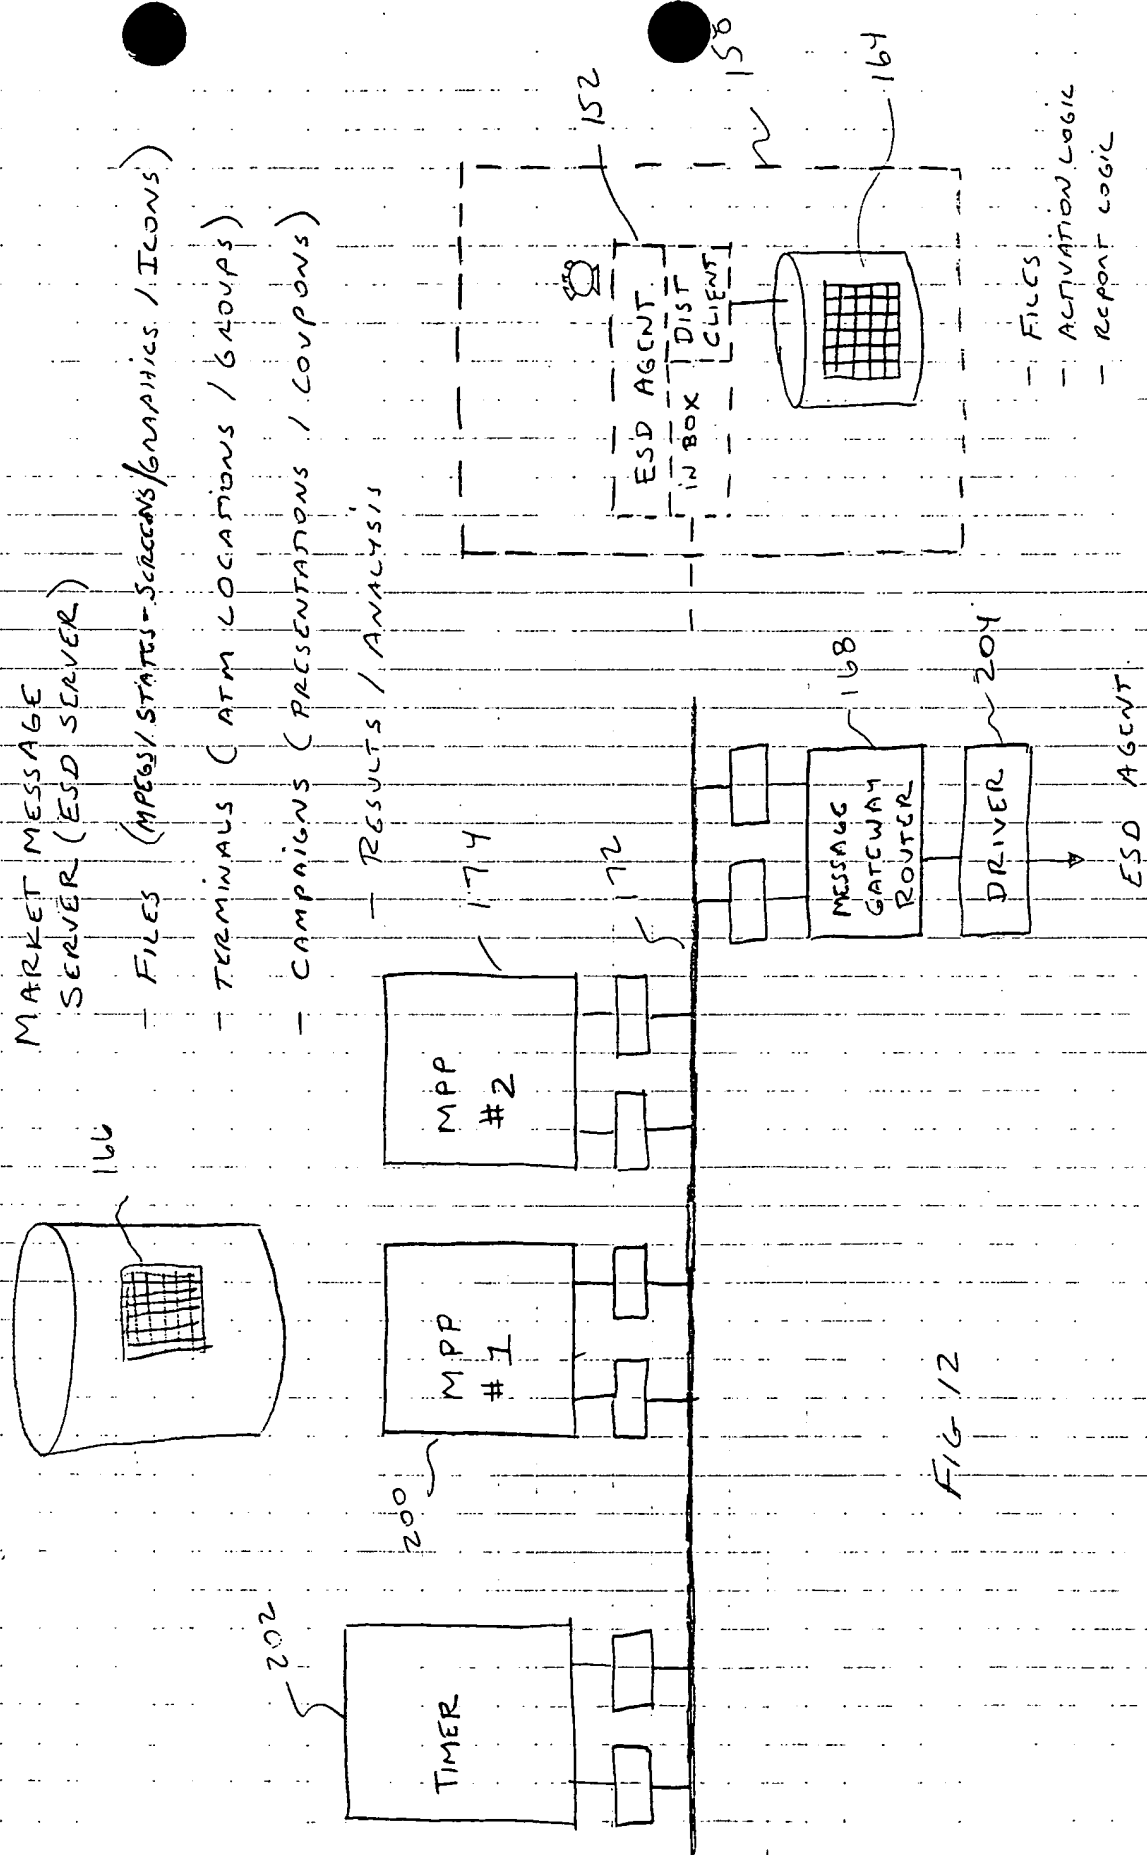 MARKET MESSAGE
SERVER (ESD SERVER)
- FILES (MPEGS/STATES-SCREENS/GRAPHICS/ICONS)
- TERMINALS (ATM LOCATIONS / GROUPS)
- CAMPAIGNS (PRESENTATIONS / COUPONS)
- RESULTS / ANALYSIS
166
202
TIMER
200
MPP
#1
MPP
#2
174
172
MESSAGE
GATEWAY
ROUTER
168
DRIVER
204
ESD AGENT
152
158
ESD AGENT
IN BOX
DIST
CLIENT
164
- FILES
- ACTIVATION LOGIC
- REPORT LOGIC
FIG 12